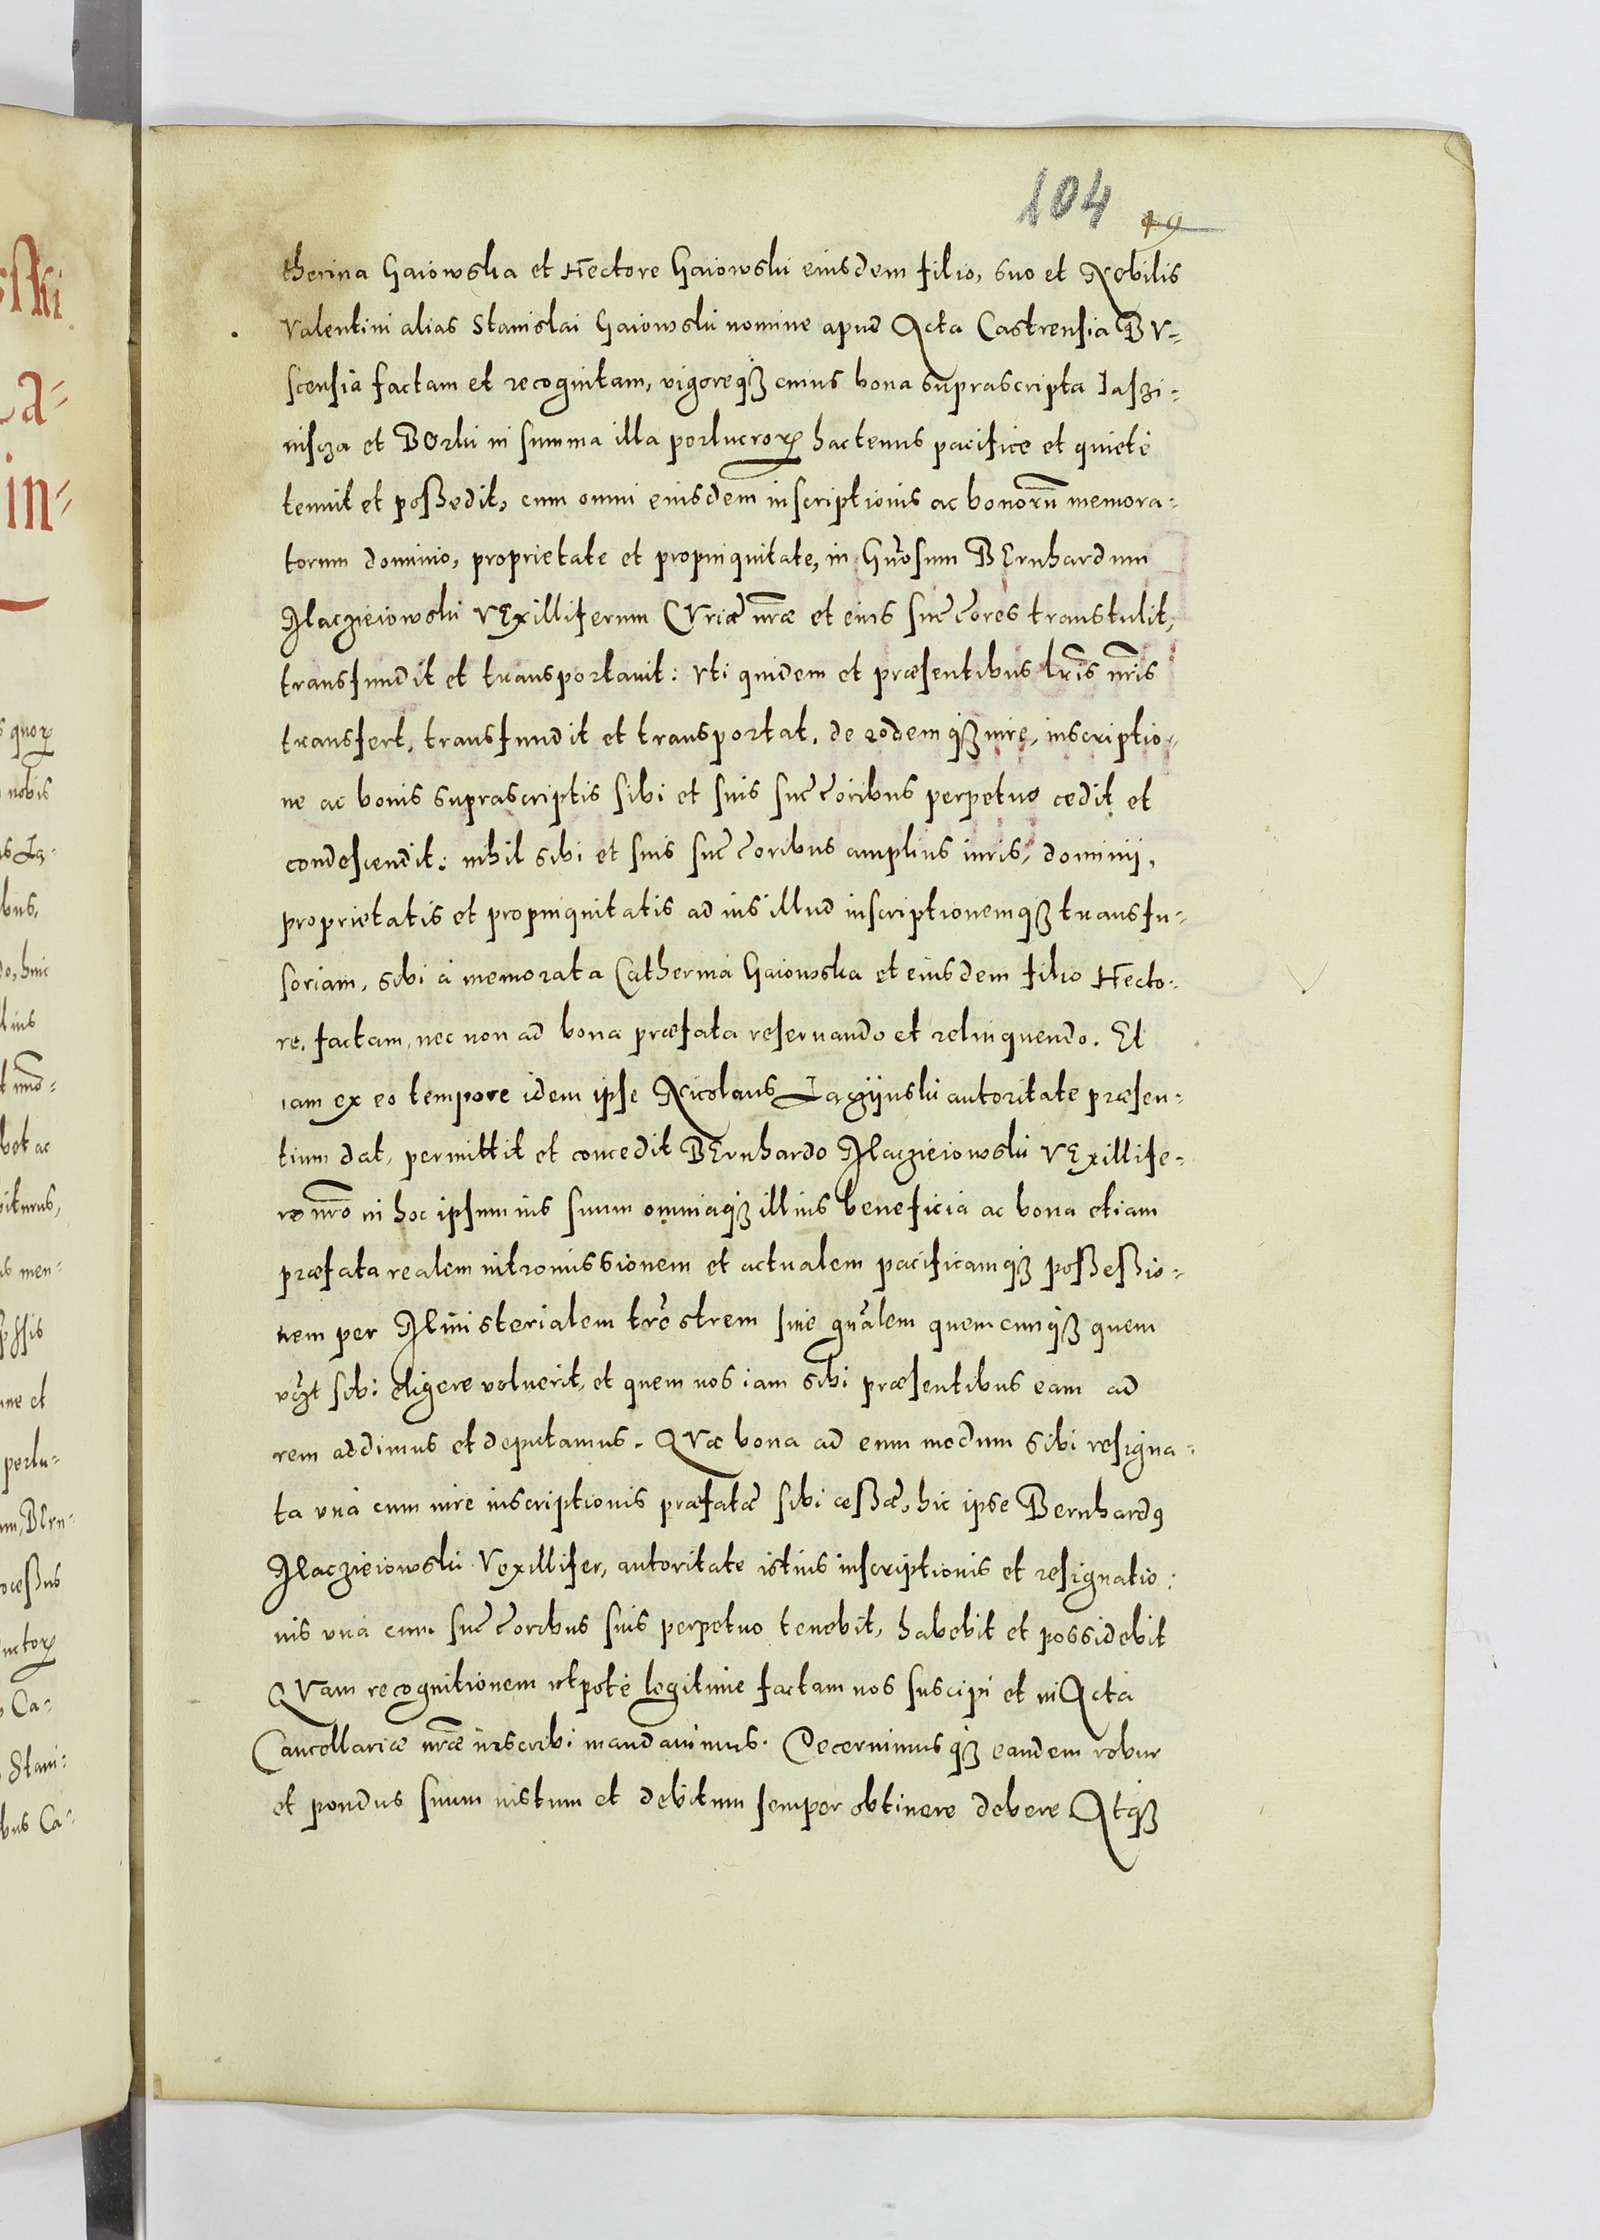 104 49
therina Gaiowska et Hectore Gaiowski eiusdem filio, suo et Nobilis
Valentini alias Stanislai Gaiowski nomine apud Acta Castrensia BV-
scensia factam et recognitam, vigoreqȝ cuius bona suprascripta Iaszi-
nisza et BOrki in summa illa porlucroꝝ hactenus pacifice et quietè
tenuit et poßedit, cum omni eiusdem inscriptionis ac bonorũ memora-
torum dominio, proprietate et propinquitate, in Gñosum BErnhardum
Maczieiowski VExilliferum CVriæ nr̃æ et eius succ̃cores transtulit,
transfundit et transportauit: Vti quidem et præsentibus lr̃is nr̃is
transfert, transfundit et transportat, de eodemqȝ iure, inscriptio-
ne ac bonis suprascriptis sibi et suis succ̃coribus perpetuo cedit et
condescendit: nihil sibi et suis succ̃coribus amplius iuris, dominij,
proprietatis et propinquitatis ad ius illud inscriptionemqȝ transfu-
soriam, sibi à memorata Catherina Gaiowska et eiusdem filio Hecto-
re, factam, nec non ad bona præfata reseruando et relinquendo. Et
iam ex eo tempore idem ipse Nicolaus Lagijnski autoritate præsen-
tium dat, permittit et concedit BErnhardo Maczieiowski VExillife-
ro nr̃o in hoc ipsum ius suum omniaqȝ illius beneficia ac bona etiam
præfata realem intromissionem et actualem pacificamqȝ poßeßio-
nem per Ministerialem trr̃estrem siue gñalem quemcunqȝ quem
sibi eligere voluerit, et quem nos iam sibi præsentibus eam ad
rem addimus et deputamus. QVæ bona ad eum modum sibi resigna-
ta vnà cum iure inscriptionis præfatæ sibi ceßæ, hic ipse Bernhardꝰ
Maczieiowski Vexillifer, autoritate istius inscriptionis et resignatio-
nis vnà cum succ̃coribus suis perpetuo tenebit, habebit et possidebit
QVam recognitionem vtpotè legitimè factam nos suscipi et in Acta
Cancellariæ nr̃æ inscribi mandauimus. Decernimusqȝ eandem robur
et pondus suum iustum et debitum semper obtinere debere Atqȝ